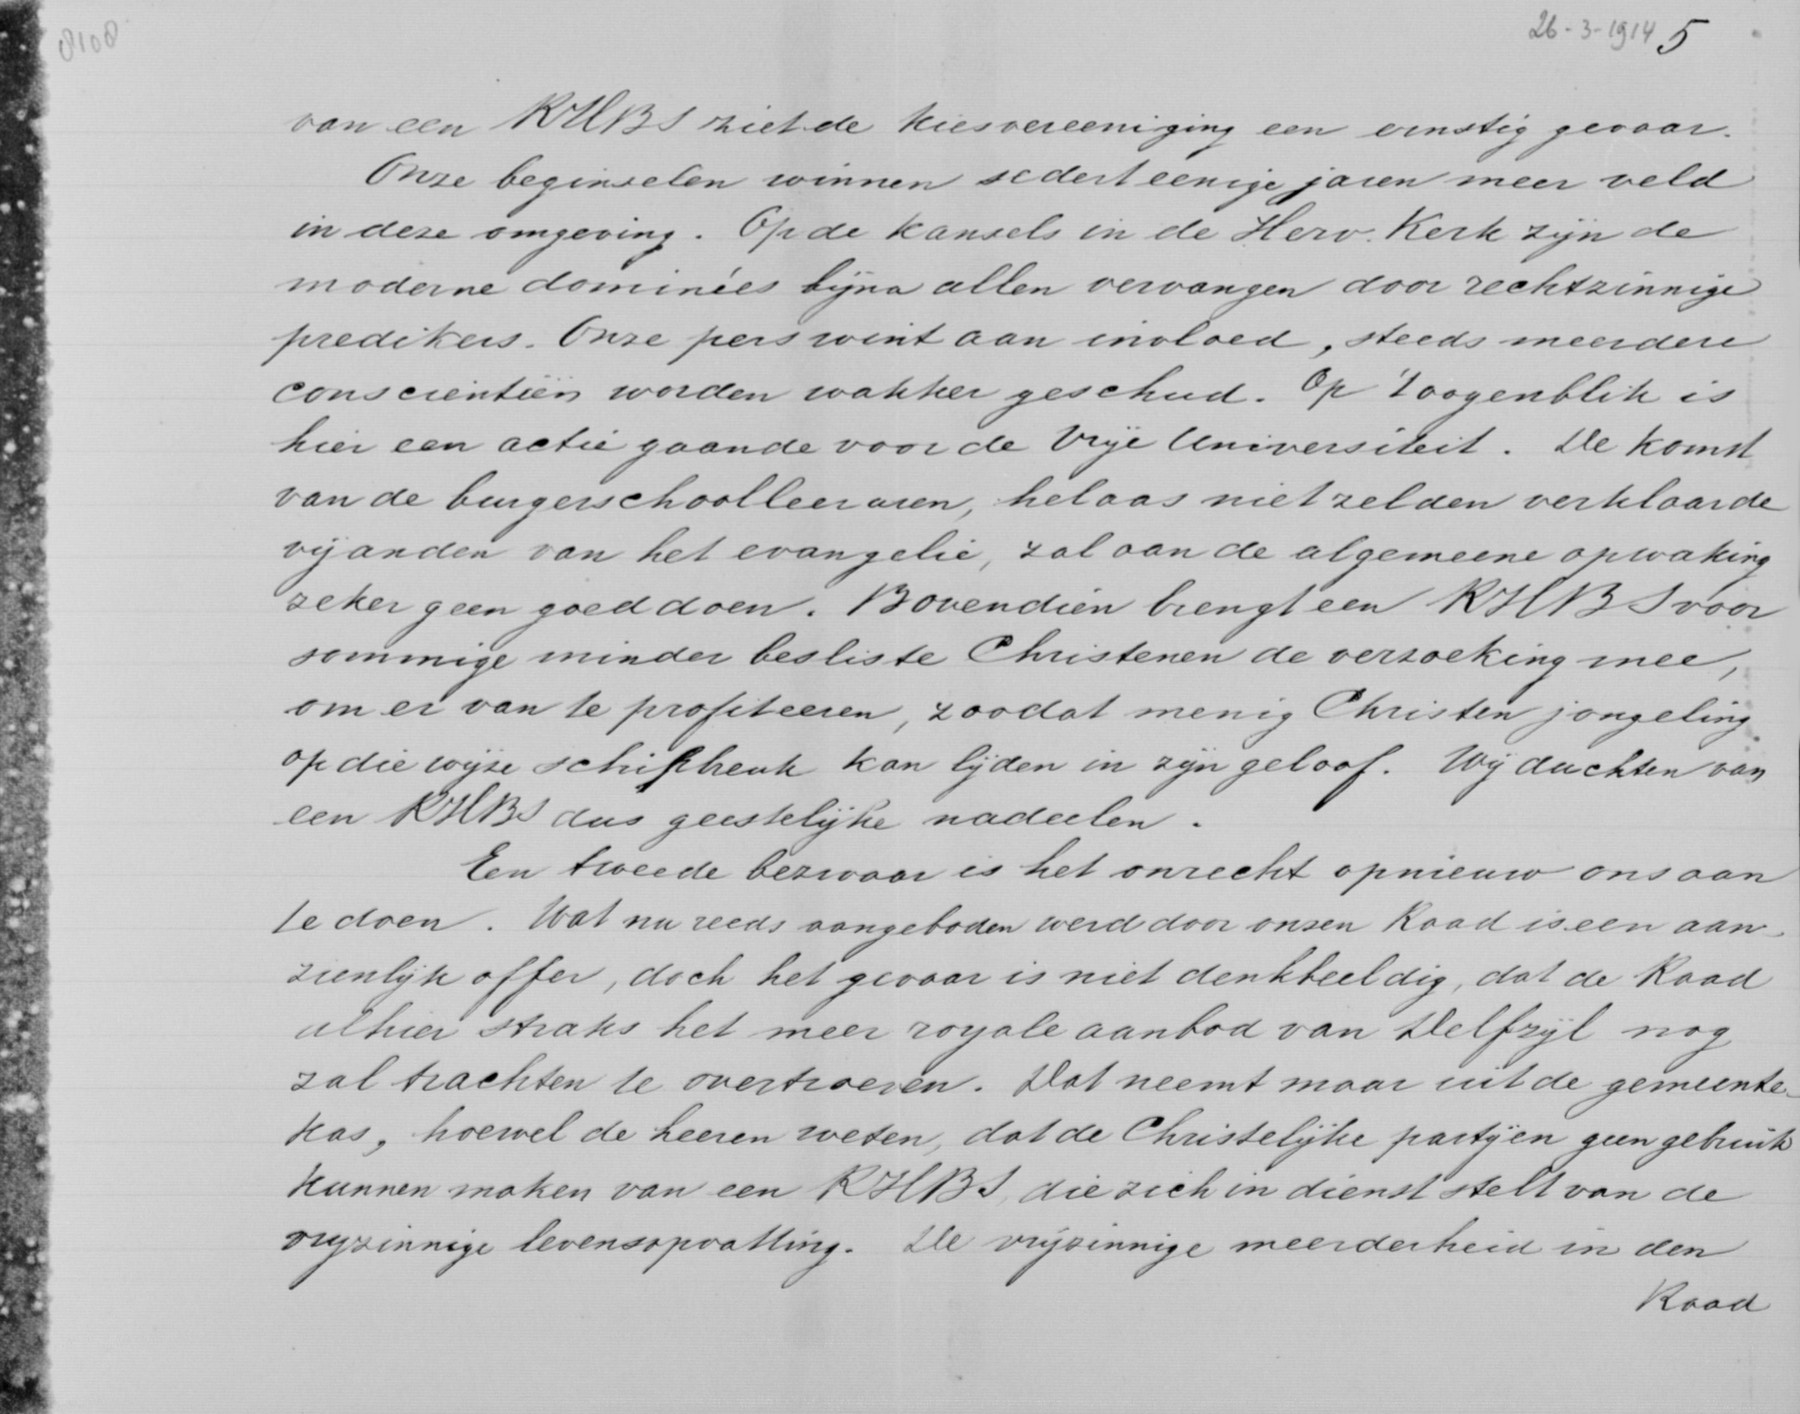 8108
26-3-1914 5
van een RHBS ziet de Kiesvereeniging een ernstig gevaar.
Onze beginselen winnen sedert eenige jaren meer veld
in deze omgeving. Op de kansels in de Herv. Kerk zijn de
moderne dominées bijna allen vervangen door rechtzinnige
predikers. Onze pers wint aan invloed, steeds meerdere
conscientiën worden wakker geschud. Op 't oogenblik is
hier een actie gaande voor de Vrije Universiteit. De komst
van de burgerschoolleeraren, helaas niet zelden verklaarde
vijanden van het evangelie, zal aan de algemeene opwaking
zeker geen goed doen. Bovendien brengt een RHBS voor
sommige minder besliste Christenen de verzoeking mee,
om er van te profiteeren, zoodat menig Christen jongeling
op die wijze schipbreuk kan lijden in zijn geloof. Wij duchten van
een RHBS dus geestelijke nadeelen.
Een tweede bezwaar is het onrecht opnieuw ons aan
te doen. Wat nu reeds aangeboden werd door onzen Raad is een aan-
zienlijk offer, doch het gevaar is niet denkbeeldig, dat de Raad
alhier straks het meer royale aanbod van Delfzijl nog
zal trachten te overtroeven. Dat neemt maar uit de gemeente-
kas, hoewel de heeren weten, dat de Christelijke partijen geen gebruik
kunnen maken van een RHBS, die zich in dienst stelt van de
vrijzinnige levensopvatting. De vrijzinnige meerderheid in den
Raad